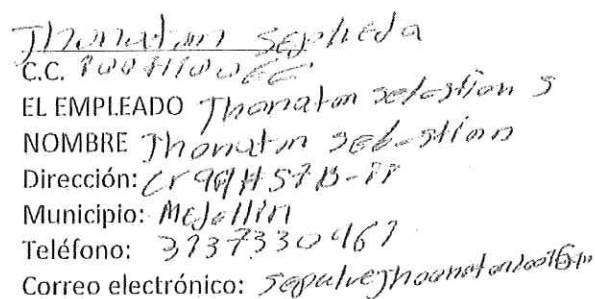 Jhonatan Sepulveda
C.C.
EL EMPLEADO Jhonatan Sebastian S
NOMBRE Jhonatan Sebastian
Dirección: Cr 99 # 57 B-
Municipio: Medellin
Teléfono: 3137330461
Correo electrónico: